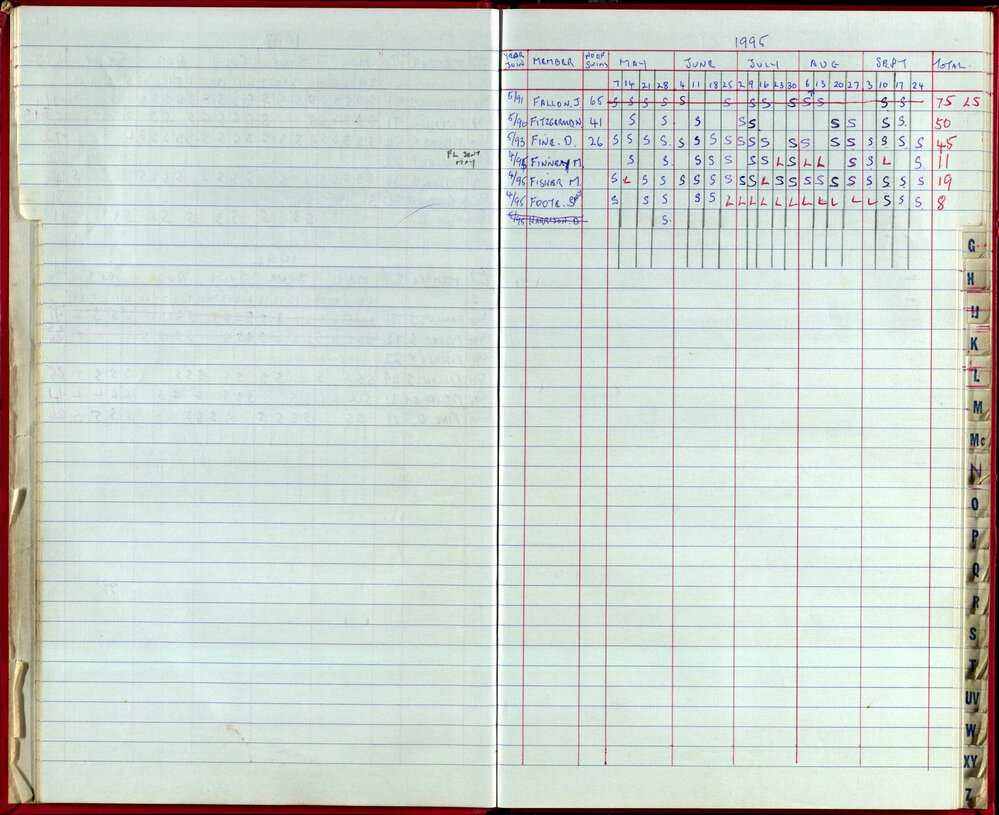 1995
YEAR JOIN MEMBER NO OF SWIMS MAY JUNE JULY AUG SEPT TOTAL
7 14 21 28 4 11 18 25 2 9 16 23 30 6 13 20 27 3 10 17 24
5/91 FALLON. J 65 S S S S S S S S S S S S S 75 LS
5/90 FITZGERALD N 41 S S. S S S S S S S. 50
5/93 FINE. D. 26 S S S S. S S S S S S S S S S S S S S S S 45
FL SENT MAY
4/95 FINNEY M. S S. S S S S S L S L L S S L S. 11
4/95 FISHER M. S L S S S S S S S S L S S S S S S S S S S 19
4/95 FOOTE. S S S S S S L L L L L L L L L L L L S S S. 8
6/95 HARRISON. D S.
G
H
IJ
K
L
M
Mc
N
O
P
Q
R
S
T
UV
W
XY
Z